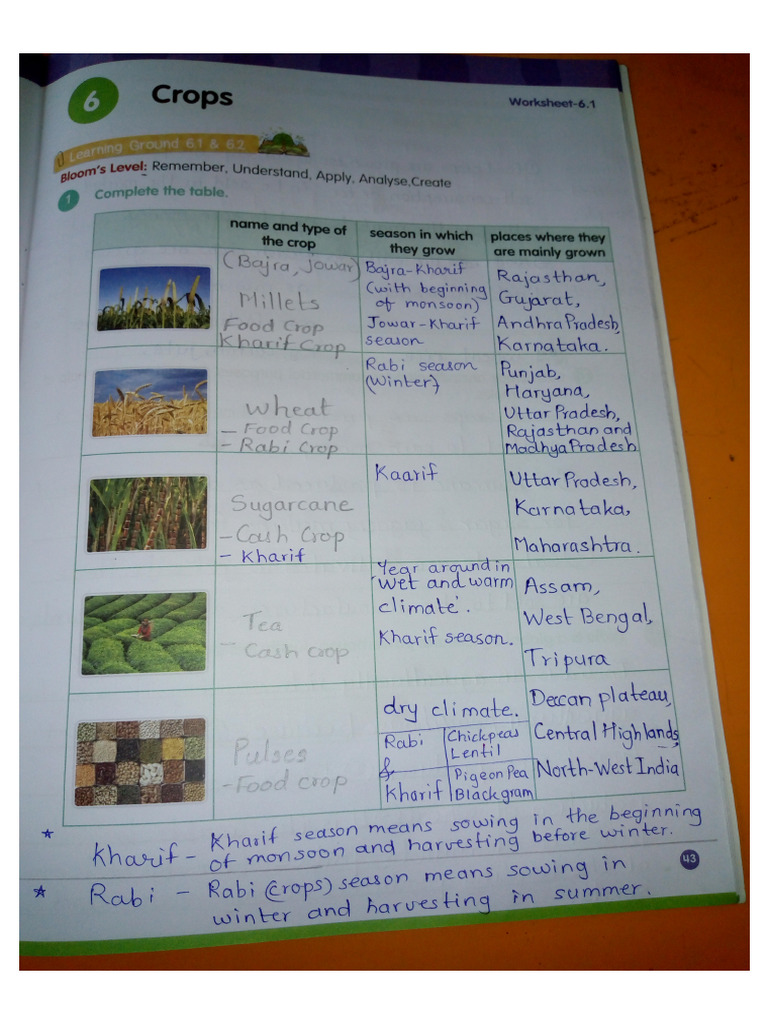 6 Crops
Worksheet-6.1
Learning Ground 6.1 & 6.2
Bloom's Level: Remember, Understand, Apply, Analyse,Create
1 Complete the table.
name and type of
the crop
season in which
they grow
places where they
are mainly grown
(Bajra, jowar)
Millets
Food Crop
Kharif Crop
Bajra-Kharif
(with beginning
of monsoon)
Jowar-Kharif
season
Rajasthan,
Gujarat,
Andhra Pradesh,
Karnataka.
Wheat
- Food Crop
- Rabi Crop
Rabi season
(Winter)
Punjab,
Haryana,
Uttar Pradesh,
Rajasthan and
Madhya Pradesh
Sugarcane
- Cash Crop
- Kharif
Kaarif
Uttar Pradesh,
Karnataka,
Maharashtra.
Tea
- Cash crop
Year around in
'Wet and warm
climate'.
Kharif season.
Assam,
West Bengal,
Tripura
Pulses
- Food crop
dry climate.
Rabi
&
Kharif
Chickpeas
Lentil
Pigeon Pea
Black gram
Deccan plateau,
Central Highlands,
North-West India
* Kharif - Kharif season means sowing in the beginning
of monsoon and harvesting before winter.
43
* Rabi - Rabi (crops) season means sowing in
winter and harvesting in summer.